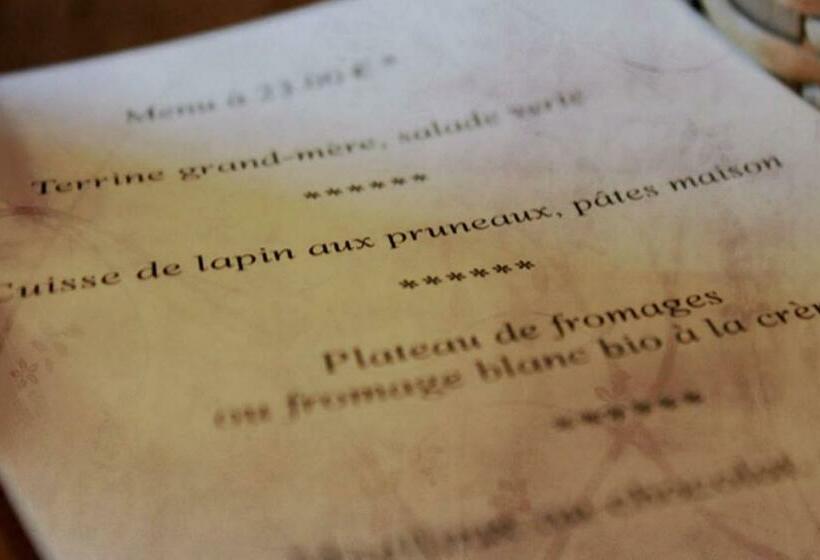 Menu à 23.00 € *
Terrine grand-mère, salade verte
******
Cuisse de lapin aux pruneaux, pâtes maison
******
Plateau de fromages
ou fromage blanc bio à la crè
******
au chocolat